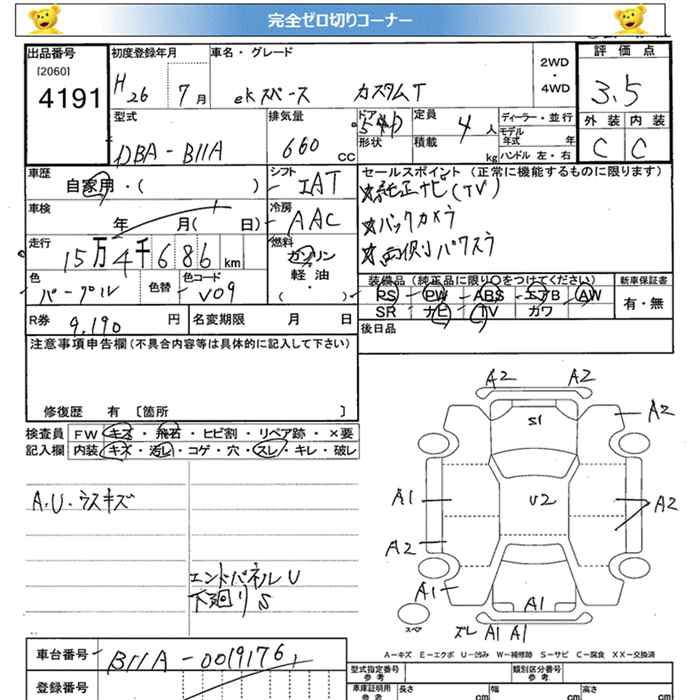 完全ゼロ切りコーナー
出品番号
[2060]
4191
初度登録年月
H26 7月
車名・グレード
ekスペース カスタムT
2WD
・
4WD
評価点
3.5
外装 内装
C C
型式
DBA-B11A
排気量
660 cc
ドア
形状
5
定員
4人
積載
kg
ディーラー・並行
モデル年式 年
ハンドル 左・右
車歴
自家用・( )
シフト
IAT
冷房
AAC
燃料
ガソリン
軽油
・
( )
車検
年 月( 日)
走行
15万4千686km
色
パープル
色替
色コード
V09
R券
9.190円
名変期限 月 日
セールスポイント(正常に機能するものに限ります)
純正ナビ(TV)
バックカメラ
両側パワスラ
装備品(純正品に限り○をつけてください)
PS PW ABS エアB AW
SR ナビ TV カワ
新車保証書
有・無
後日品
注意事項申告欄(不具合内容等は具体的に記入して下さい)
修復歴 有 [箇所 ]
検査員記入欄
FW キズ・飛石・ヒビ割・リペア跡・×要
内装 キズ・汚レ・コゲ・穴・スレ・キレ・破レ
A.U.ウスキズ
エンドパネルU
下廻りS
A2 A2
S1
A2
A1
U2
A2
A2
A1
A1
スペア
ズレ A1 A1
A-キズ E-エクボ U-凹み W-補修跡 S-サビ C-腐食 XX-交換済
車台番号
B11A-0019176
登録番号
型式指定番号
参考
類別区分番号
参考
車庫証明用
参考
長さ cm
幅 cm
高さ cm